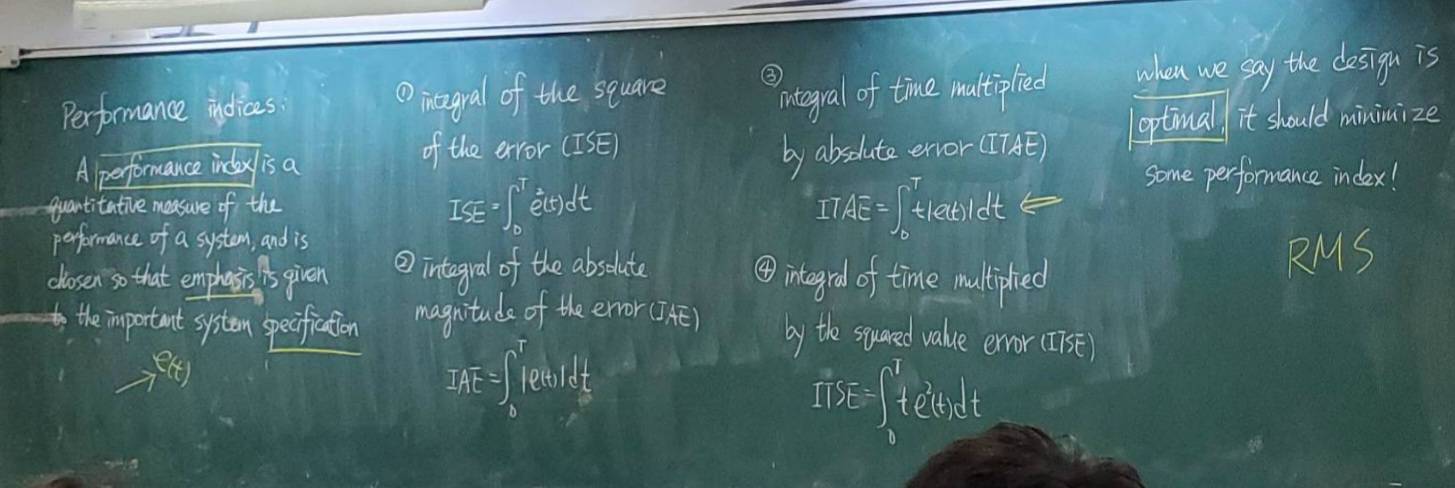 Performance indices:
A performance index is a
quantitative measure of the
performance of a system, and is
chosen so that emphasis is given
to the important system specification
e(t)
① integral of the square
of the error (ISE)
ISE = ∫₀ᵀ e²(t)dt
② integral of the absolute
magnitude of the error (IAE)
IAE = ∫₀ᵀ |e(t)|dt
③ integral of time multiplied
by absolute error (ITAE)
ITAE = ∫₀ᵀ t|e(t)|dt ⇐
④ integral of time multiplied
by the squared value error (ITSE)
ITSE = ∫₀ᵀ te²(t)dt
when we say the design is
optimal, it should minimize
some performance index!
RMS